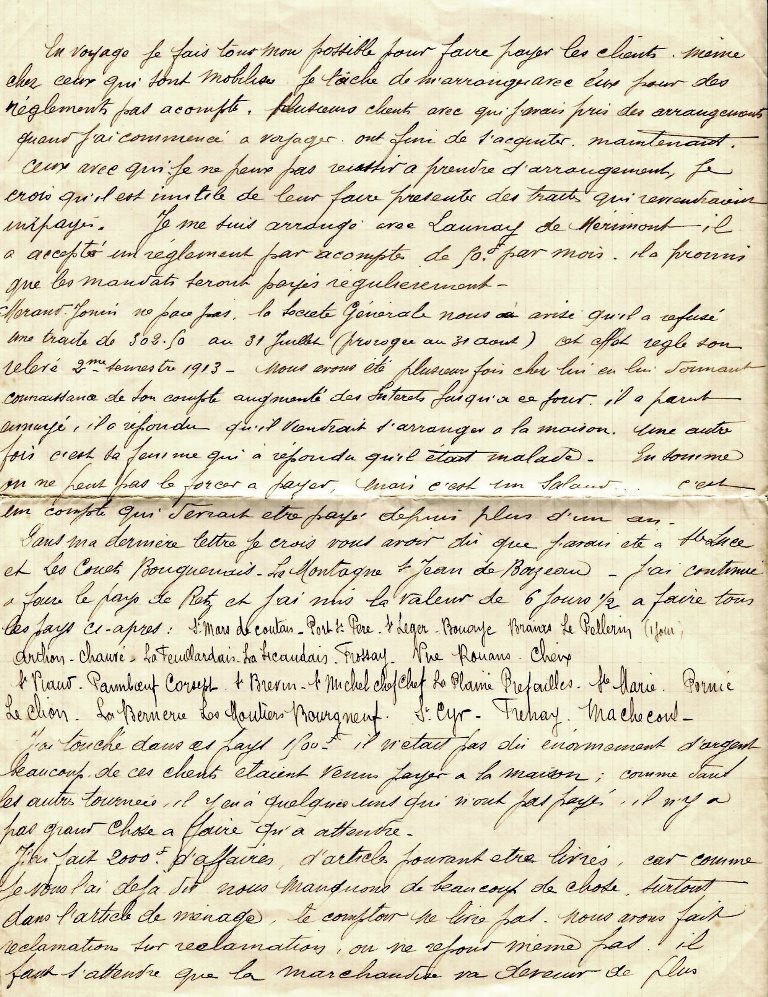 En voyage je fais tous mon possible pour faire payer les clients. même
chez ceux qui sont mobilisé. Je tâche de m'arranger avec eux pour des
règlements pas acompte. plusieurs clients avec qui j'avais pris des arrangements
quand j'ai commencé a voyager. ont fini de s'acquiter. maintenant.
ceux avec qui je ne peux pas reussir a prendre d'arrangement, Je
crois qu'il est inutile de leur faire presenter des traites qui reviendraient
impayés. Je me suis arrangé avec Launay de Mérimont il
a accepté un réglement par acompte de 50.f par mois. il a promis
que les mandats seront payés regulierement -
Jouin ne paie pas. la Societe Générale nous a avisé qu'il a refusé
une traite de 302.50 au 31 Juillet (prorogee au 31 aout) cet effet regle son
relevé 2me semestre 1913 - Nous avons été plusieurs fois chez lui en lui donnant
connaissance de son compte augmenté des Interets Jusqu'a ce jour. il a parut
ennuyé, il a répondu qu'il viendrait s'arranger a la maison. une autre
fois c'est sa femme qui a répondu qu'il était malade - En somme
on ne peut pas le forcer a payer, mais c'est un Salaud... c'est
un compte qui devrait etre payé depuis plus d'un an -
Dans ma dernière lettre Je crois vous avoir dis que j'avais été a Ste Luce
et Les Couets Bouguenais - La Montagne St Jean de Boizeau - J'ai continué
a faire le pays de Retz et j'ai mis la valeur de 6 Jours 1/2 a faire tous
les pays ci-apres: St Mars de coutais - Port St Pere - St Leger - Bouaye Brains Le Pellerin (1 Jour)
Arthon - Chauvé - La Feuillardais - La Sicaudais - Frossay - Vue Rouans - Cheix
St Viaud - Paimboeuf Corsept. St Brevin - St Michel chef Chef La Plaine Prefailles - Ste Marie. Pornic
Le Clion. La Bernerie Les Moutiers Bourgneuf. St Cyr - Fresnay. Machecoul -
J'ai touché dans ces pays 1500.f il n'etait pas dû énormement d'argent
beaucoup de ces clients etaient venus payer a la maison; comme dans
les autres tournées, il y en a quelques uns qui n'ont pas payés, il n'y a
pas grand chose a faire qu'a attendre -
J'ai fait 2000.f d'affaires, d'articles pouvant etre livrés, car comme
Je vous l'ai deja dit nous manquons de beaucoup de chose, surtout
dans l'article de ménage, le comptoir ne livre pas. nous avons fait
reclamations sur reclamations, on ne repond même pas. il
faut s'attendre que la marchandise va devenir de plus